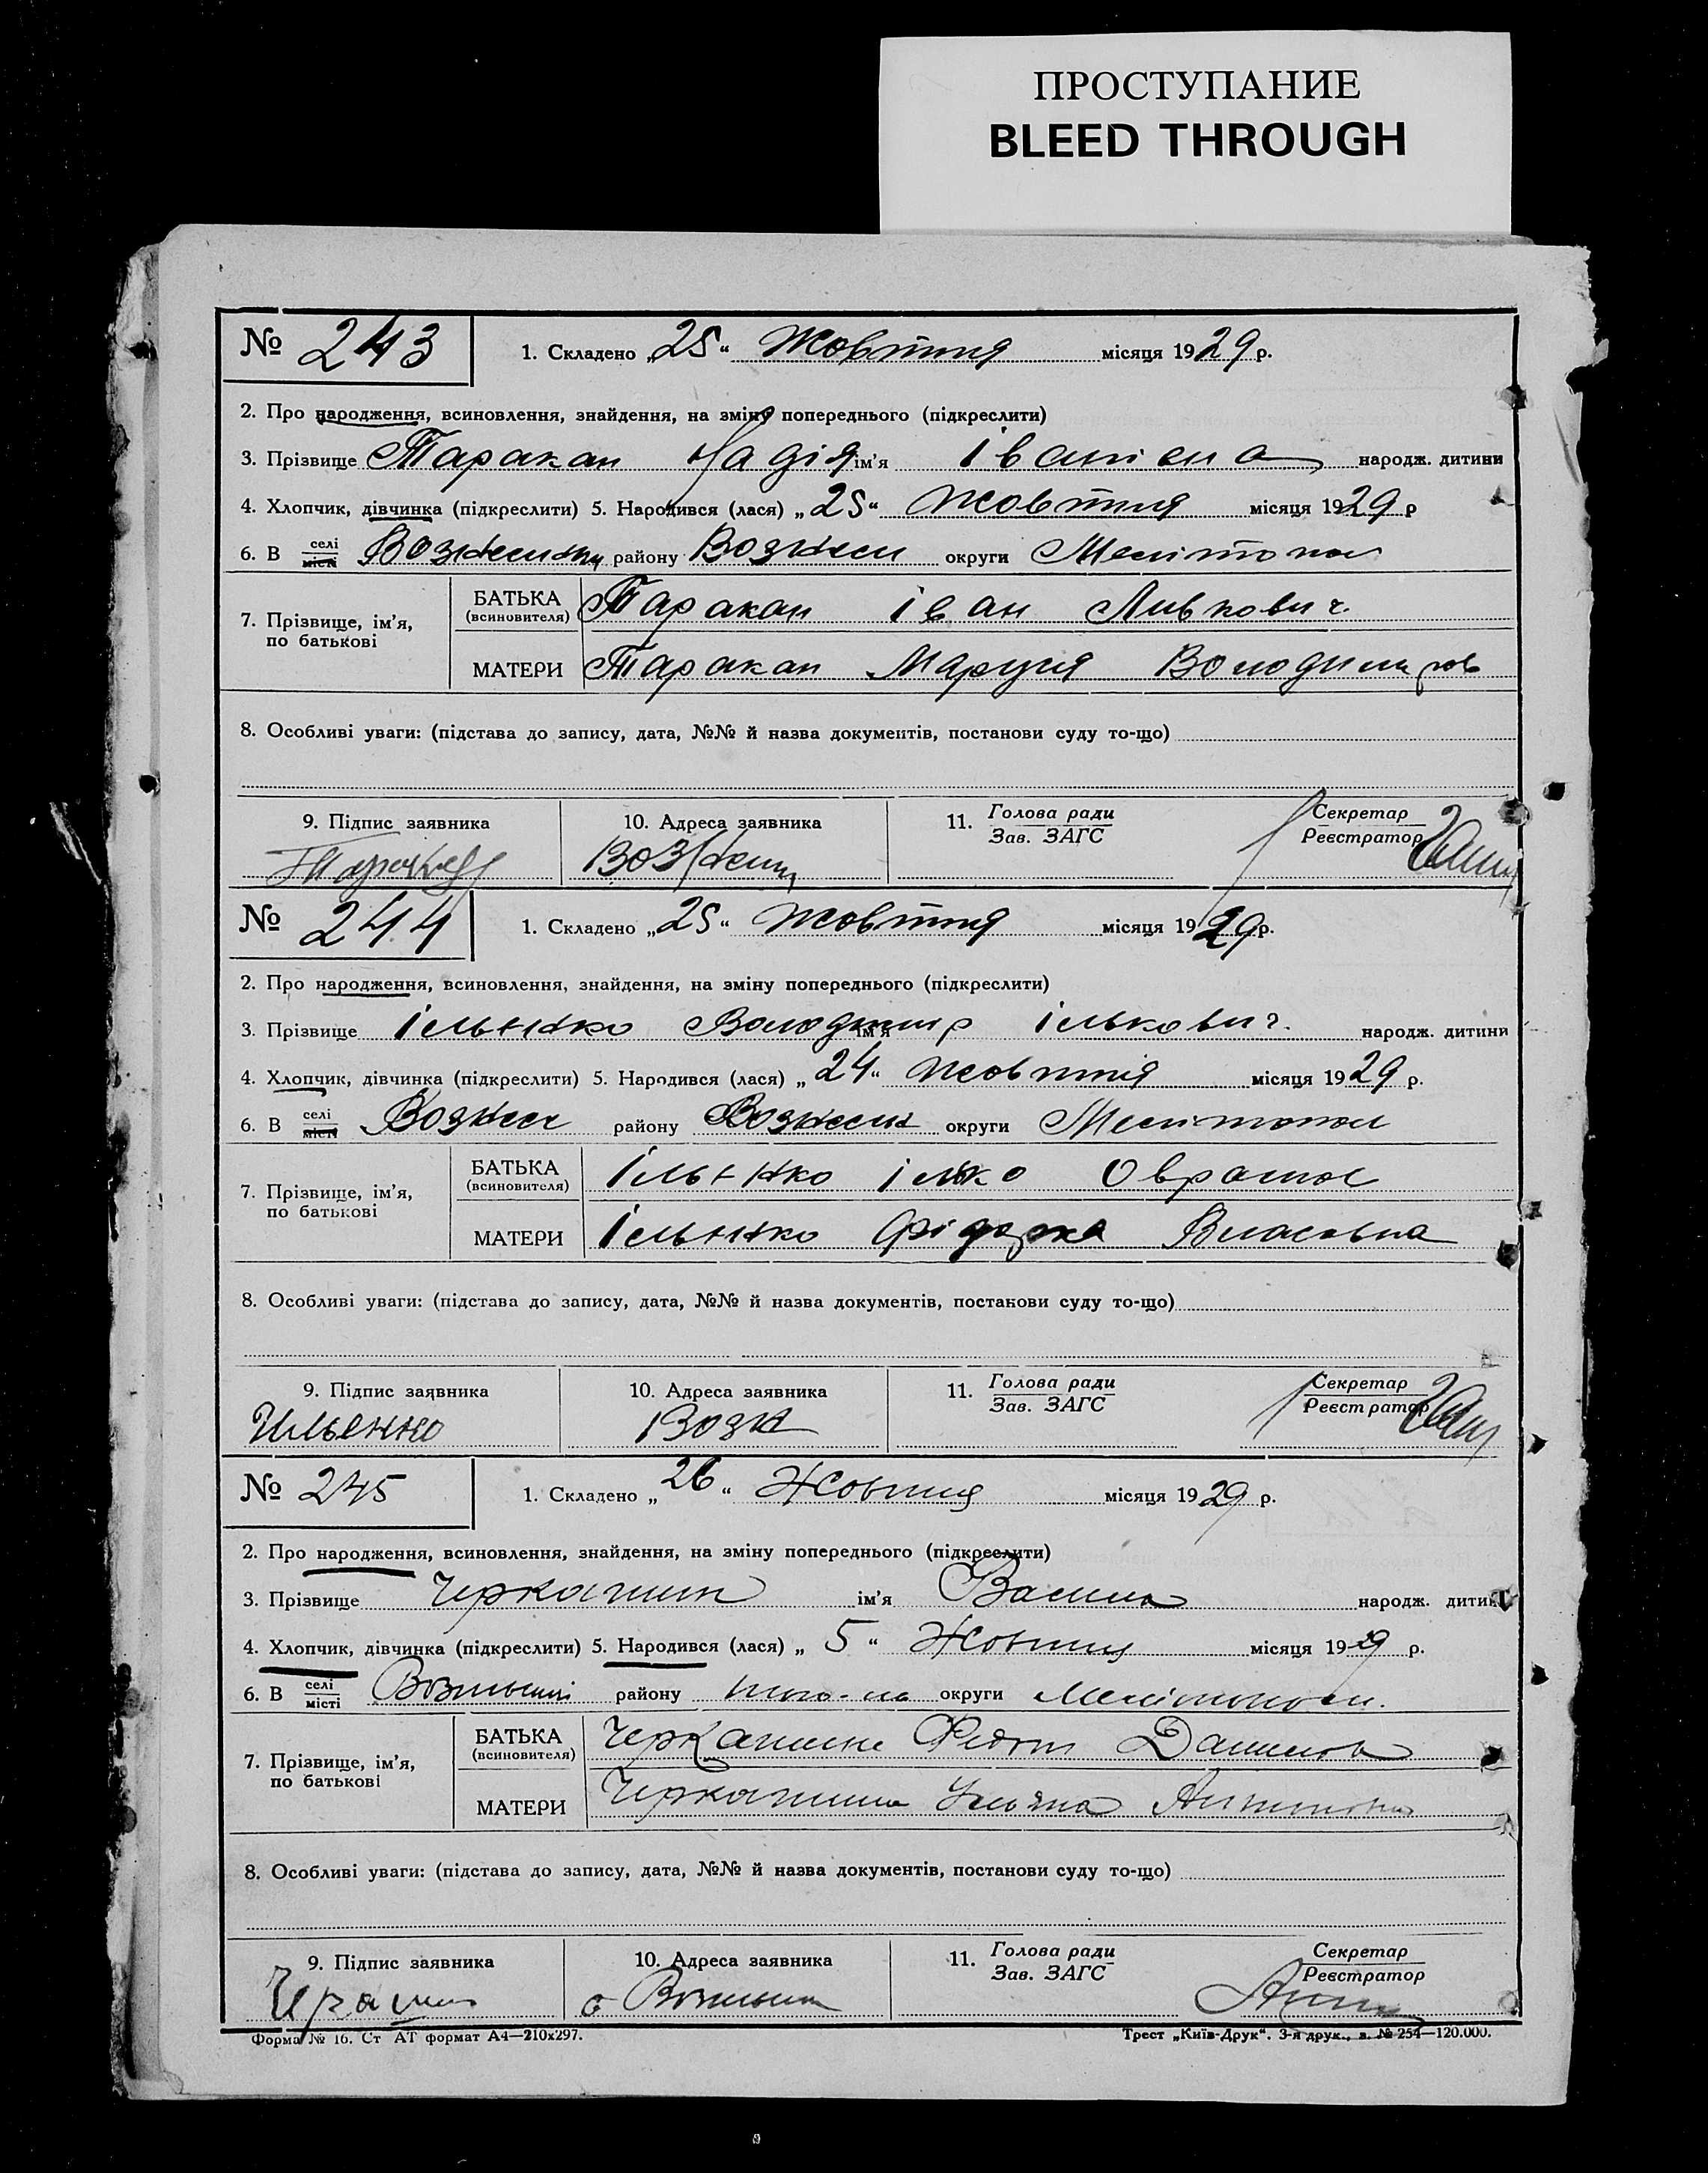 ПРОСТУПАНИЕ
BLEED THROUGH
№ 243 1. Складено „25“ Жовтня місяця 1929 р.
2. Про народження, всиновлення, знайдення, на зміну попереднього (підкреслити)
3. Прізвище Таракан Надія ім'я Іванівна народж. дитини
4. Хлопчик, дівчинка (підкреслити) 5. Народився (лася) „25“ Жовтня місяця 1929 р
6. В селі місті району Вознесен округи Мелітопол
7. Прізвище, ім'я, по батькові
БАТЬКА (всиновителя) Таракан Іван Левкович
МАТЕРИ Таракан Маруся Володимиров
8. Особливі уваги: (підстава до запису, дата, №№ й назва документів, постанови суду то-що)
9. Підпис заявника 10. Адреса заявника 11. Голова ради Зав. ЗАГС Секретар Реєстратор
№ 244 1. Складено „25“ Жовтня місяця 1929 р.
2. Про народження, всиновлення, знайдення, на зміну попереднього (підкреслити)
3. Прізвище Ільєнко Володимир ім'я Ількович народж. дитини
4. Хлопчик, дівчинка (підкреслити) 5. Народився (лася) „24“ Жовтня місяця 1929 р.
6. В селі місті Вознесен району Вознесен округи Мелітопол
7. Прізвище, ім'я, по батькові
БАТЬКА (всиновителя) Ільєнко Ілько
МАТЕРИ Ільєнко Фідорка Власовна
8. Особливі уваги: (підстава до запису, дата, №№ й назва документів, постанови суду то-що)
9. Підпис заявника 10. Адреса заявника 11. Голова ради Зав. ЗАГС Секретар Реєстратор
Ильенко Возн
№ 245 1. Складено „26“ Жовтня місяця 1929 р.
2. Про народження, всиновлення, знайдення, на зміну попереднього (підкреслити)
3. Прізвище Черкашин ім'я Василь народж. дитини
4. Хлопчик, дівчинка (підкреслити) 5. Народився (лася) „5“ Жовтня місяця 1929 р.
6. В селі місті району округи
7. Прізвище, ім'я, по батькові
БАТЬКА (всиновителя) Черкашин Федот Данилов
МАТЕРИ Черкашина Уляна Антонівна
8. Особливі уваги: (підстава до запису, дата, №№ й назва документів, постанови суду то-що)
9. Підпис заявника 10. Адреса заявника 11. Голова ради Зав. ЗАГС Секретар Реєстратор
Форма № 16. Ст АТ формат А4—210х297. Трест „Київ-Друк“. 3-я друк., з. № 254—120.000.